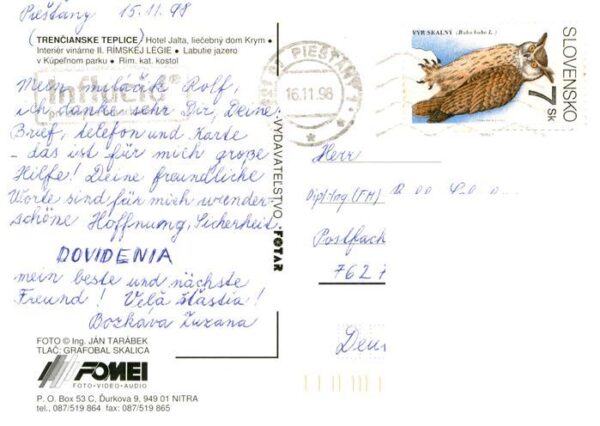 Piešťany 15.11.98
(TRENČIANSKE TEPLICE) Hotel Jalta, liečebný dom Krym •
Interiér vinárne II. RÍMSKEJ LÉGIE • Labutie jazero
v Kúpeľnom parku • Rím. kat. kostol
Mein miláčik Rolf,
ich danke sehr Dir, Deine
Brief, telefon und Karte
- das ist für mich große
Hilfe! Deine freundliche
Worte sind für mich wunder-
schöne Hoffnung, Sicherheit.
DOVIDENIA
mein beste und nächste
Freund! Veľa šťastia!
Bozkáva Zuzana
FOTO © Ing. JÁN TARÁBEK
TLAČ: GRAFOBAL SKALICA
FOMEI
FOTO•VIDEO•AUDIO
P. O. Box 53 C, Ďurkova 9, 949 01 NITRA
tel., 087/519 864 fax: 087/519 865
VYDAVATEĽSTVO FOTAR
PIEŠŤANY 1
16.11.98
VÝR SKALNÝ (Bubo bubo L.)
SLOVENSKO
7 SK
Herr
Dipl.-Ing (FH)
Postfach
762